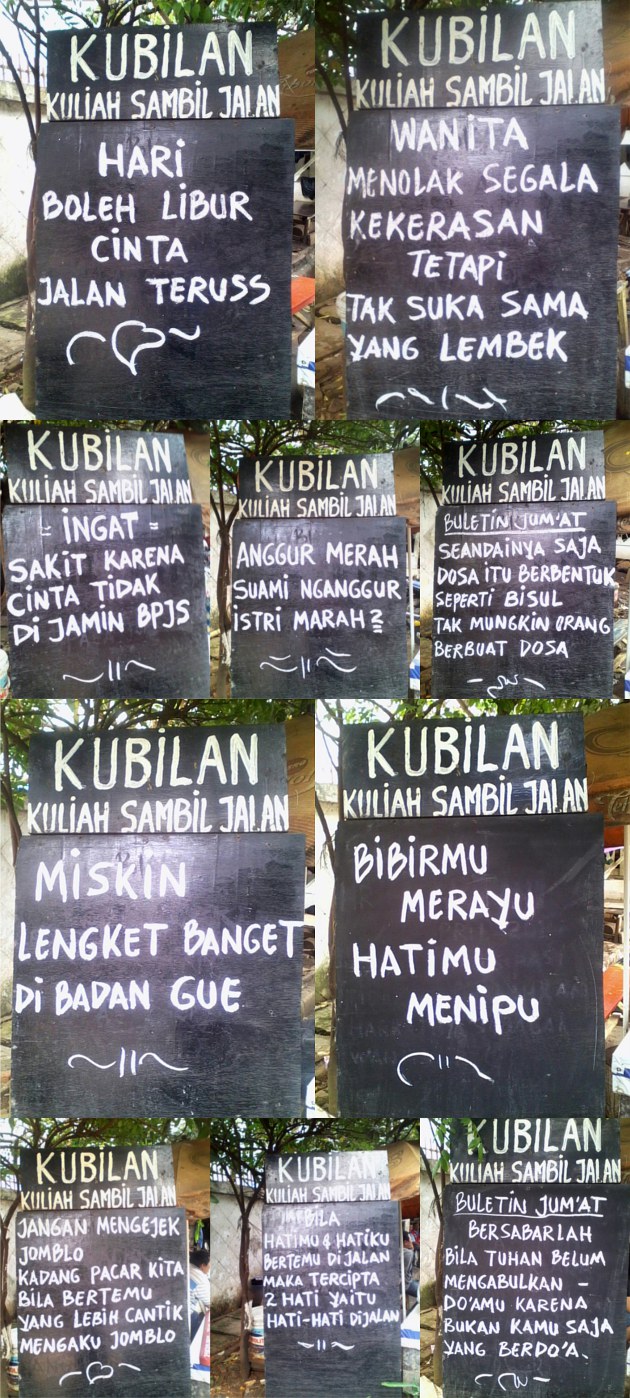 KUBILAN
KULIAH SAMBIL JALAN
HARI
BOLEH LIBUR
CINTA
JALAN TERUSS
KUBILAN
KULIAH SAMBIL JALAN
WANITA
MENOLAK SEGALA
KEKERASAN
TETAPI
TAK SUKA SAMA
YANG LEMBEK
KUBILAN
KULIAH SAMBIL JALAN
= INGAT =
SAKIT KARENA
CINTA TIDAK
DI JAMIN BPJS
KUBILAN
KULIAH SAMBIL JALAN
ANGGUR MERAH
SUAMI NGANGGUR
ISTRI MARAH2
KUBILAN
KULIAH SAMBIL JALAN
BULETIN JUM'AT
SEANDAINYA SAJA
DOSA ITU BERBENTUK
SEPERTI BISUL
TAK MUNGKIN ORANG
BERBUAT DOSA
KUBILAN
KULIAH SAMBIL JALAN
MISKIN
LENGKET BANGET
DI BADAN GUE
KUBILAN
KULIAH SAMBIL JALAN
BIBIRMU
MERAYU
HATIMU
MENIPU
KUBILAN
KULIAH SAMBIL JALAN
JANGAN MENGEJEK
JOMBLO
KADANG PACAR KITA
BILA BERTEMU
YANG LEBIH CANTIK
MENGAKU JOMBLO
KUBILAN
KULIAH SAMBIL JALAN
BILA
HATIMU & HATIKU
BERTEMU DI JALAN
MAKA TERCIPTA
2 HATI YAITU
HATI-HATI DIJALAN
KUBILAN
KULIAH SAMBIL JALAN
BULETIN JUM'AT
BERSABARLAH
BILA TUHAN BELUM
MENGABULKAN –
DO'AMU KARENA
BUKAN KAMU SAJA
YANG BERDO'A.